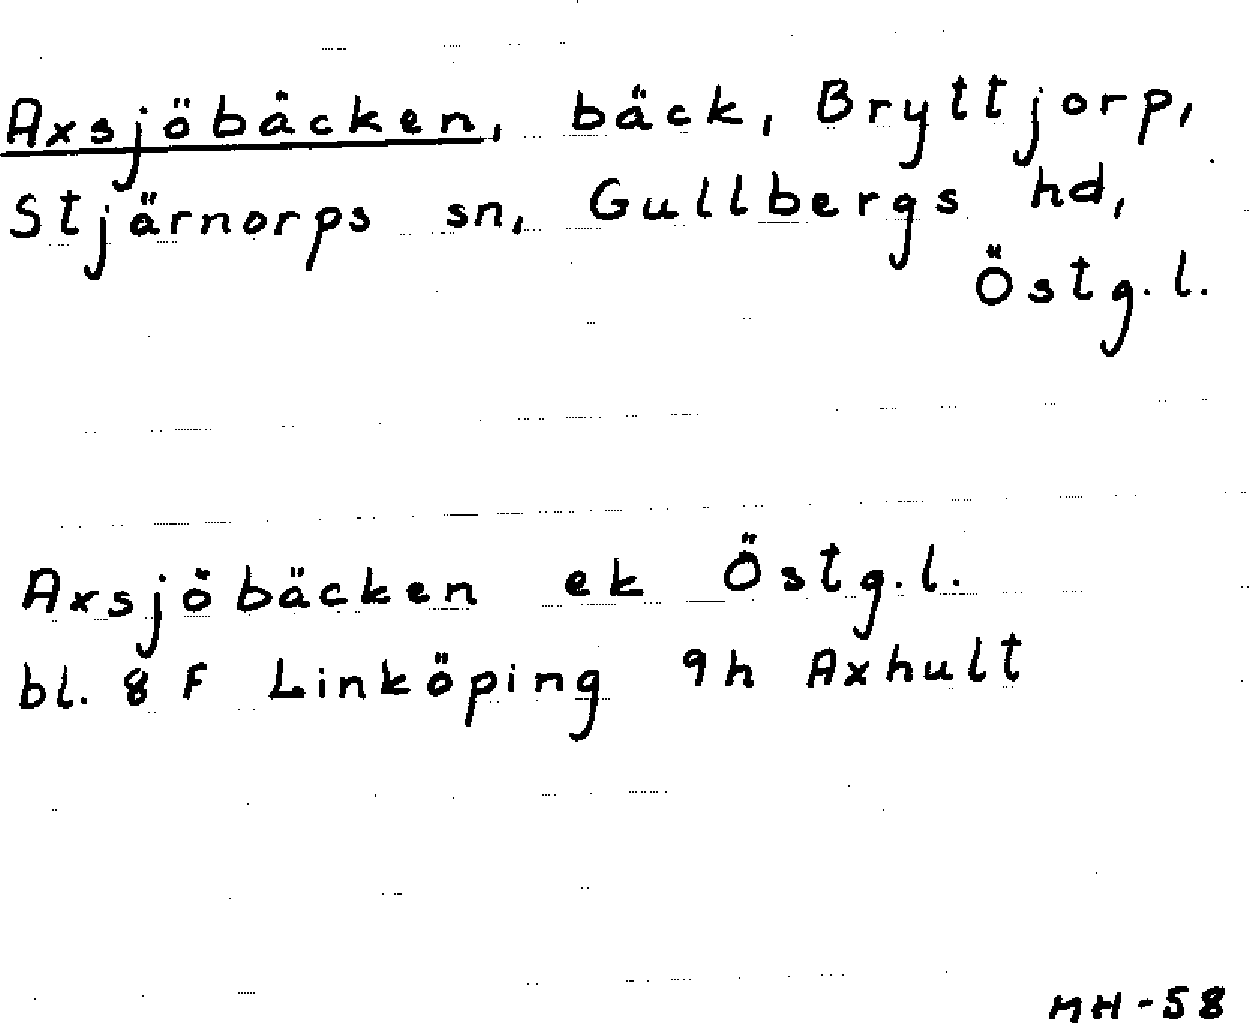 Axsjöbäcken, bäck, Bryttjorp,
Stjärnorps sn, Gullbergs hd,
Östg.l.
Axsjöbäcken ek Östg.l.
bl. 8 F Linköping 9h Axhult
MH-58